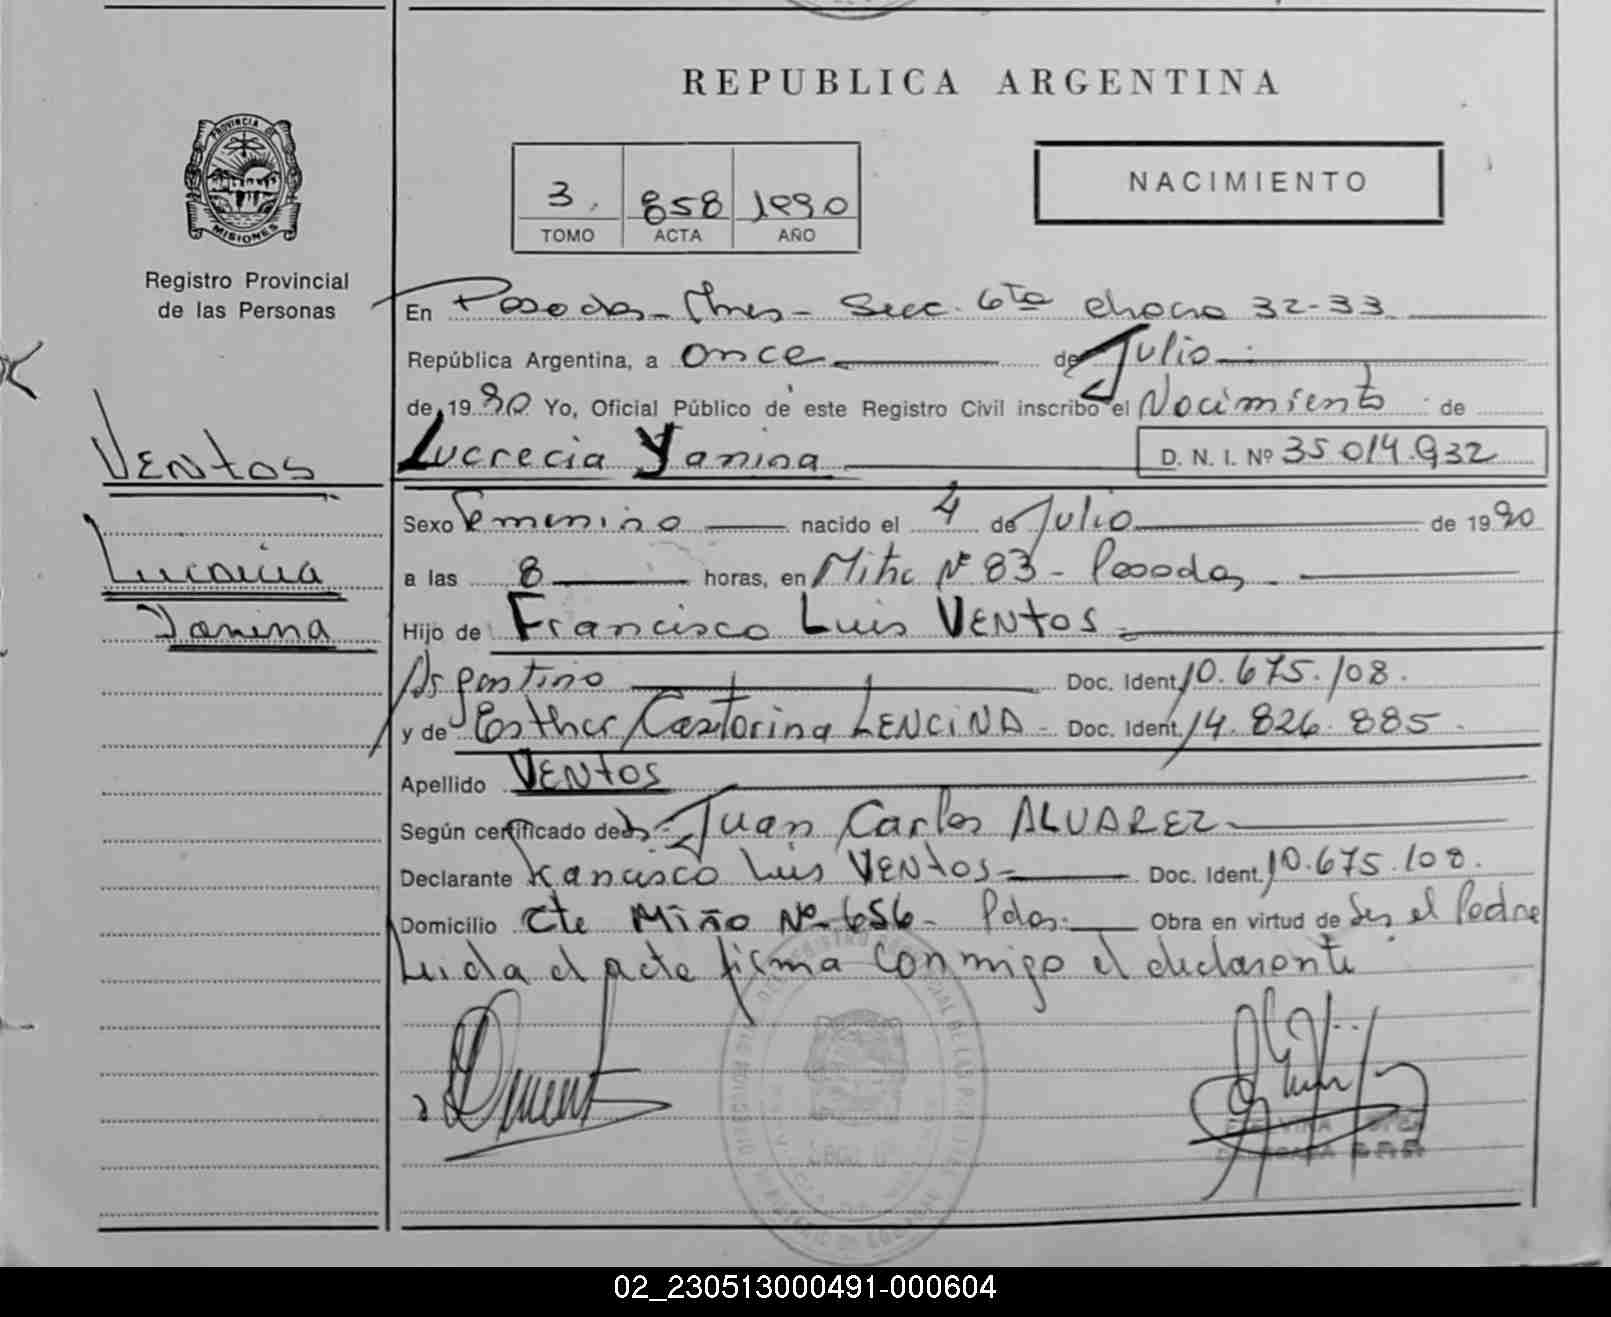 REPUBLICA ARGENTINA
PROVINCIA DE
MISIONES
Registro Provincial
de las Personas
3. 858 1990
TOMO ACTA AÑO
NACIMIENTO
En Posadas - Mnes - Secc. 6ta chacra 32-33
República Argentina, a once de Julio
de 1990 Yo, Oficial Público de este Registro Civil inscribo el Nacimiento de
Lucrecia Yanina D. N. I. Nº 35 014.932
VENtos
Lucrecia
Yanina
Sexo Femenino nacido el 4 de Julio de 1990
a las 8 horas, en Mitre Nº 83 - Posadas
Hijo de Francisco Luis VENtos
Argentino Doc. Ident. 10.675.108.
y de Esther Castorina LENCINA - Doc. Ident. 14.826.885.
Apellido VENtos
Según certificado de Juan Carlos ALVAREZ
Declarante Francisco Luis VENtos Doc. Ident. 10.675.108.
Domicilio Cte Miño Nº 656 - Pdas. Obra en virtud de Ser el Padre
Leida el acta firma conmigo el declarante
02_230513000491-000604